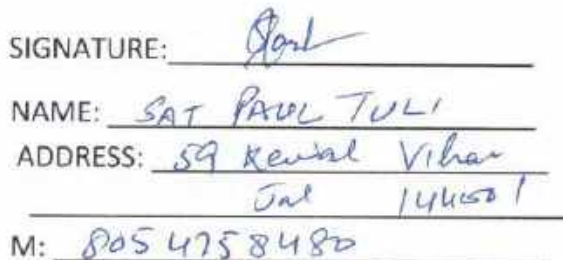 SIGNATURE:
NAME: SAT PAUL TULI
ADDRESS: 59 Kewal Vihar
Jal
M: 8054758480